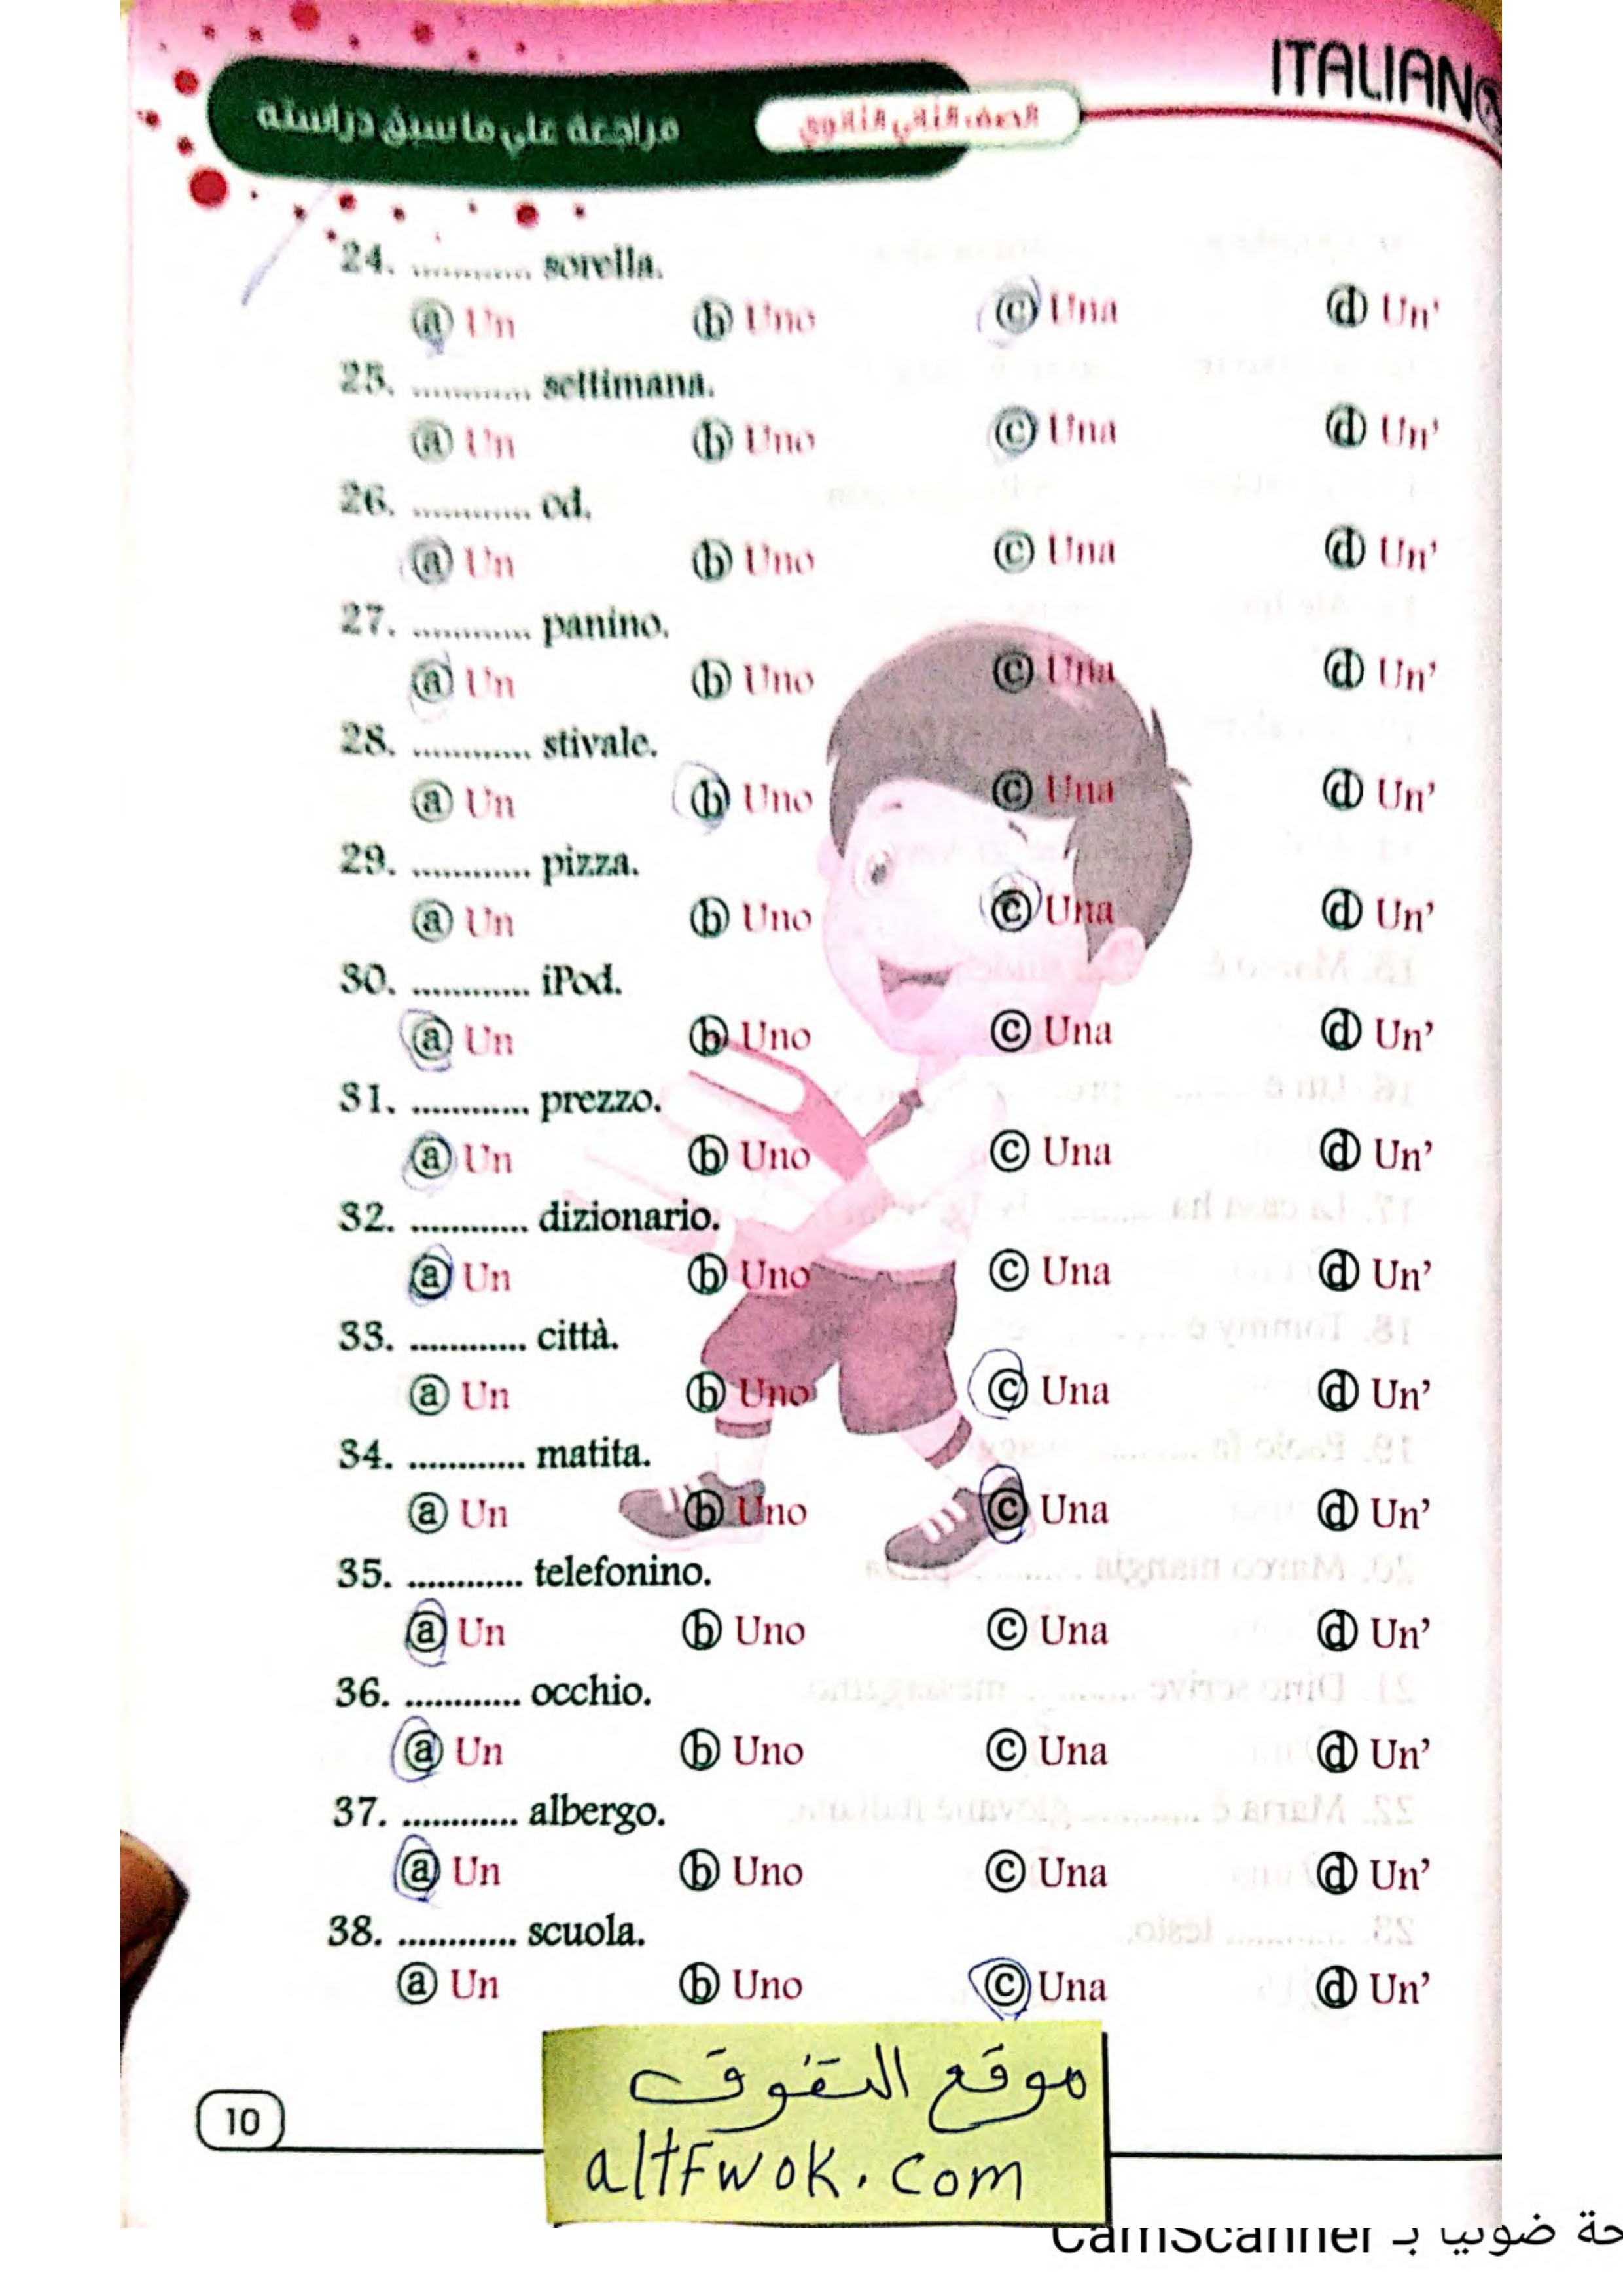 ITALIANO
مراجعة على ما سبق دراسته
الصف الثاني الثانوي
24. ............ sorella.
ⓐ Un ⓑ Uno ⓒ Una ⓓ Un'
25. ............ settimana.
ⓐ Un ⓑ Uno ⓒ Una ⓓ Un'
26. ............ cd.
ⓐ Un ⓑ Uno ⓒ Una ⓓ Un'
27. ............ panino.
ⓐ Un ⓑ Uno ⓒ Una ⓓ Un'
28. ............ stivale.
ⓐ Un ⓑ Uno ⓒ Una ⓓ Un'
29. ............ pizza.
ⓐ Un ⓑ Uno ⓒ Una ⓓ Un'
30. ............ iPod.
ⓐ Un ⓑ Uno ⓒ Una ⓓ Un'
31. ............ prezzo.
ⓐ Un ⓑ Uno ⓒ Una ⓓ Un'
32. ............ dizionario.
ⓐ Un ⓑ Uno ⓒ Una ⓓ Un'
33. ............ città.
ⓐ Un ⓑ Uno ⓒ Una ⓓ Un'
34. ............ matita.
ⓐ Un ⓑ Uno ⓒ Una ⓓ Un'
35. ............ telefonino.
ⓐ Un ⓑ Uno ⓒ Una ⓓ Un'
36. ............ occhio.
ⓐ Un ⓑ Uno ⓒ Una ⓓ Un'
37. ............ albergo.
ⓐ Un ⓑ Uno ⓒ Una ⓓ Un'
38. ............ scuola.
ⓐ Un ⓑ Uno ⓒ Una ⓓ Un'
موقع التفوق
altFwok.com
10
ضوئيا بـ CamScanner